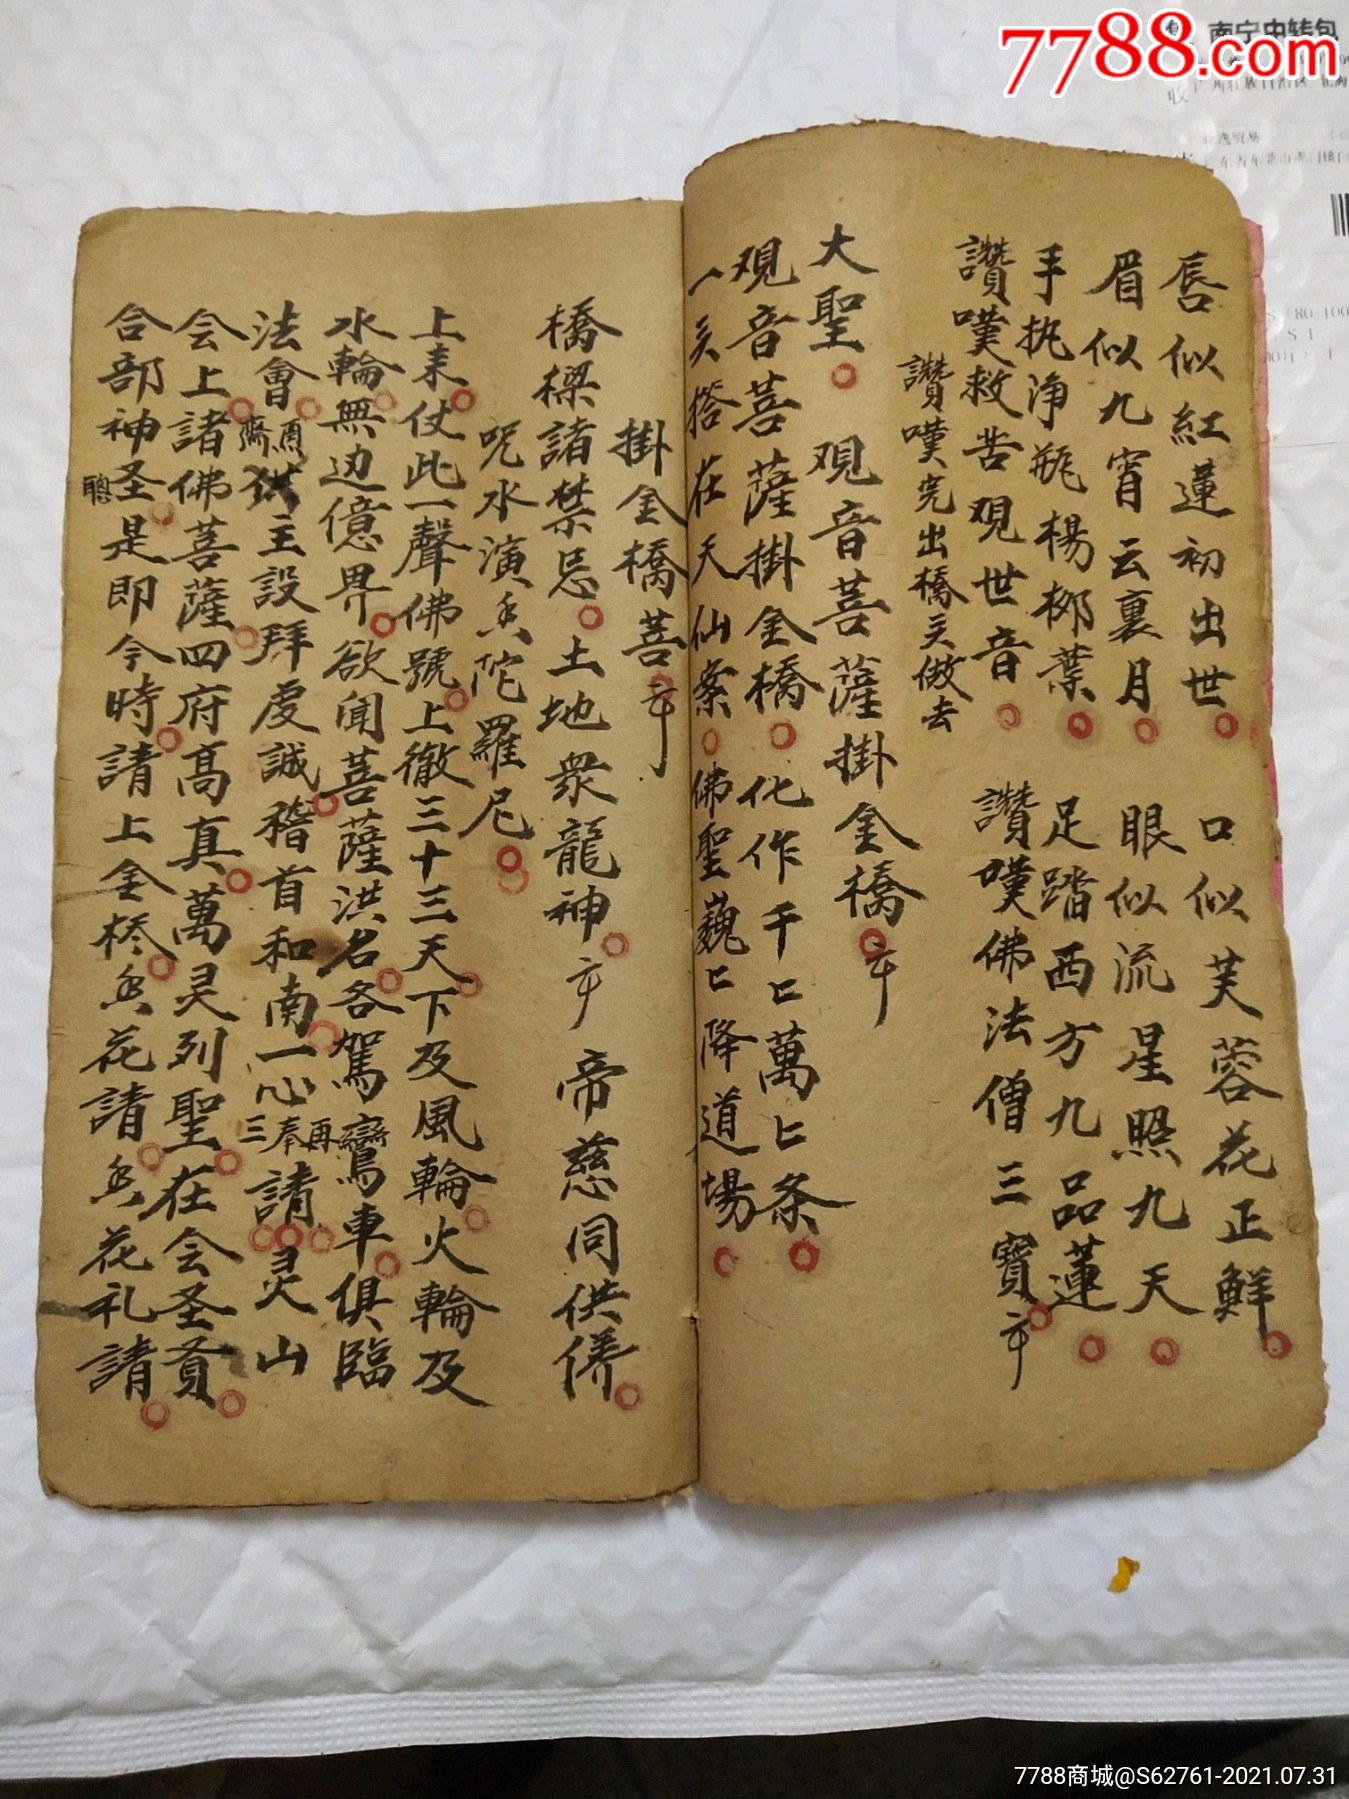 7788.com
南宁中转包
唇似紅蓮初出世 口似芙蓉花正鮮
眉似九宵云裏月 眼似流星照九天
手执净瓶楊柳葉 足踏西方九品蓮
讚嘆救苦观世音 讚嘆佛法僧三寳
讚嘆完出橋头做去
大聖 观音菩薩掛金橋
观音菩薩掛金橋 化作千匕萬匕条
一头搭在天仙案 佛聖巍匕降道場
掛金橋菩
橋樑諸禁忌 土地衆龍神 帝慈同供俻
呪水演 陀羅尼
上来仗此一聲佛號上徹三十三天下及風輪火輪及
水輪無边億界欲闻菩薩洪名各駕鸞車俱臨
法會 齋 主設拜虔誠稽首和南一心 再奉三 請灵山
会上諸佛菩薩四府高真萬灵列聖在会圣賢
合部神圣是即今時請上金桥 花請 花礼請
聽
7788商城@S62761-2021.07.31